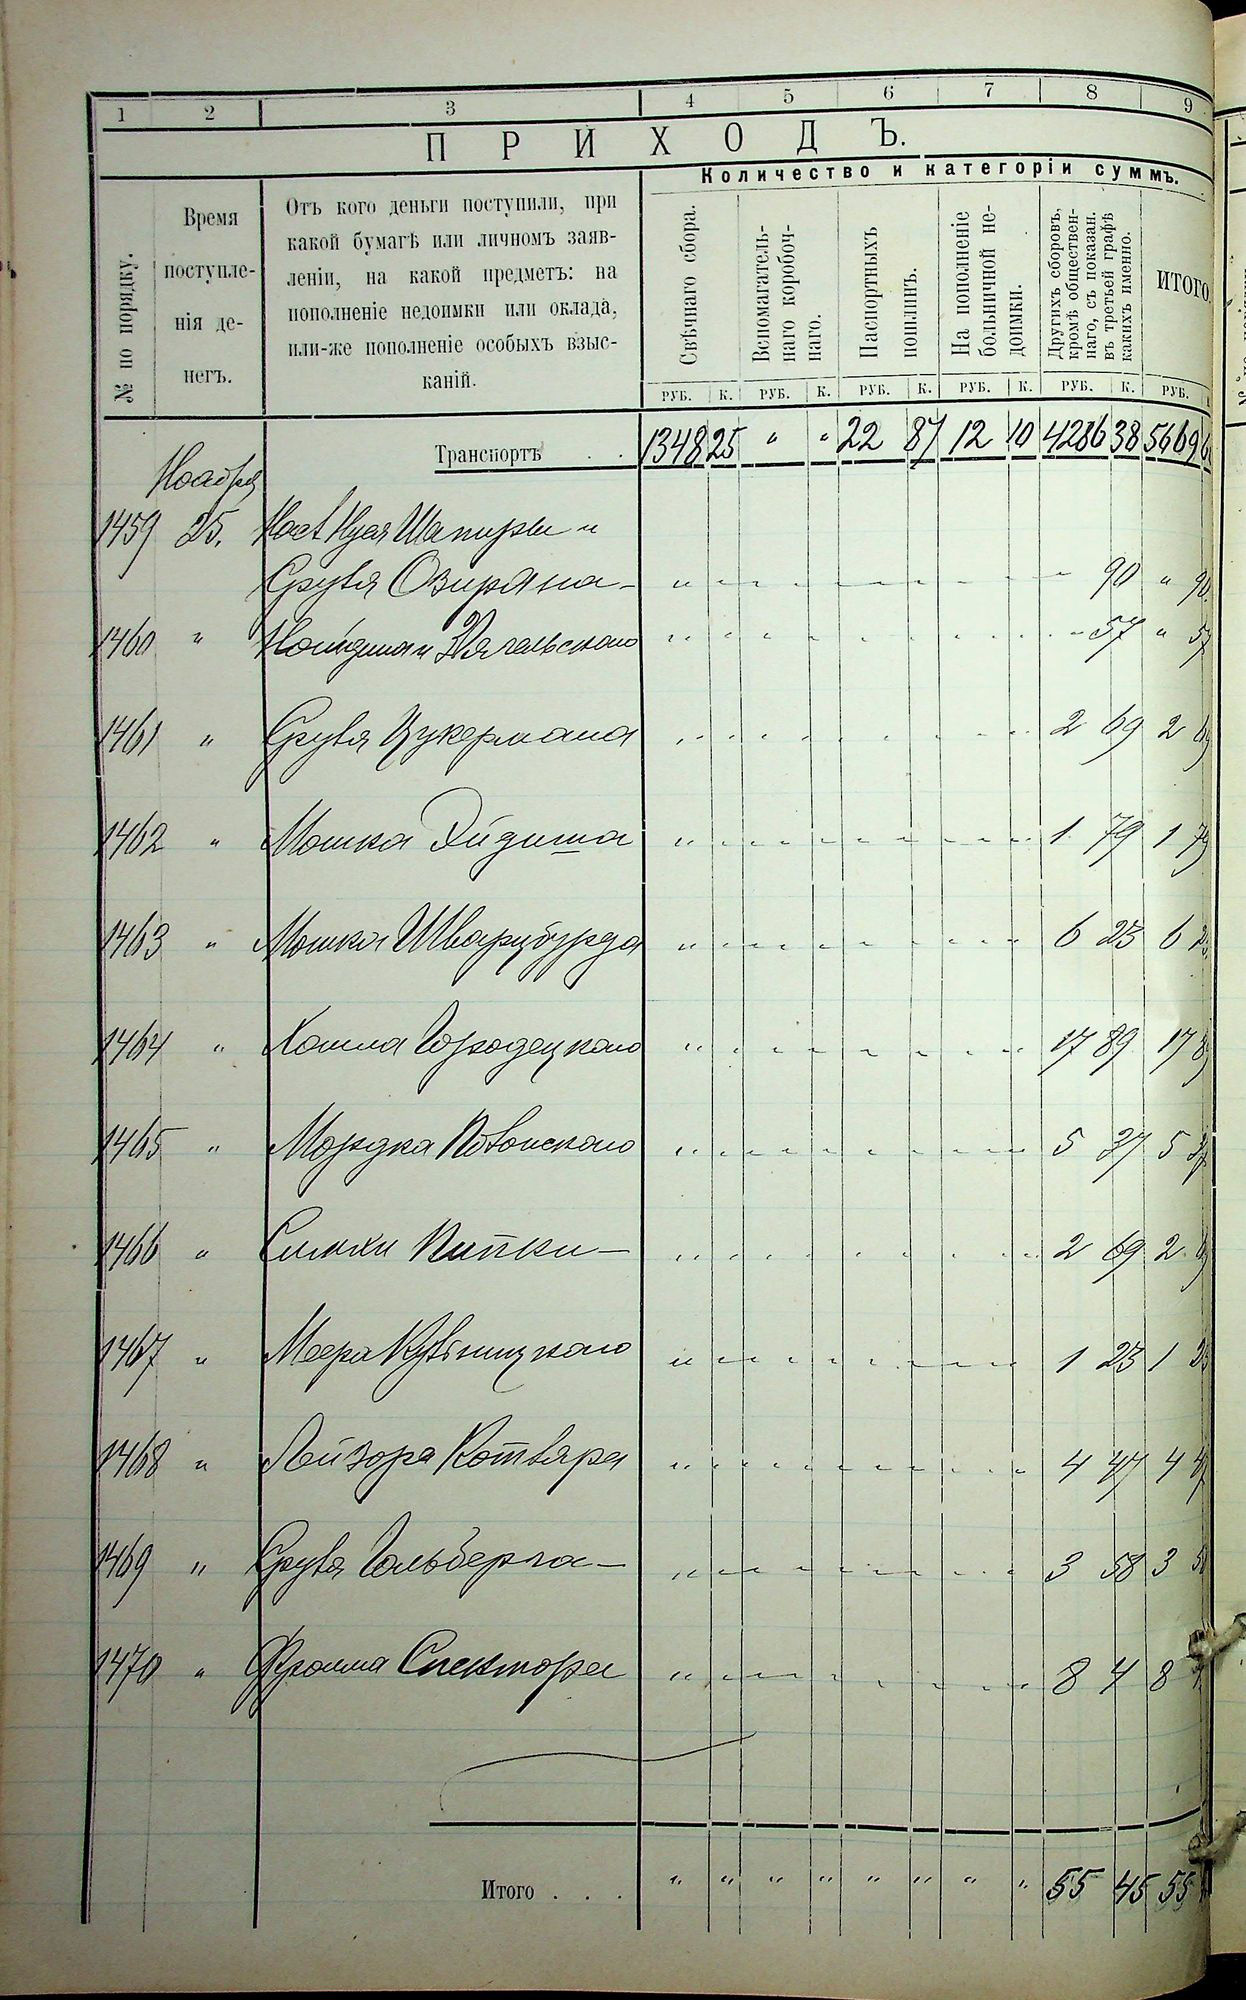 1 2 3 4 5 6 7 8 9
ПРИХОДЪ.
Количество и категоріи суммъ.
№ по порядку.
Время поступленія денегъ.
Отъ кого деньги поступили, при
какой бумагѣ или личномъ заяв-
леніи, на какой предметъ: на
пополненіе недоимки или оклада,
или-же пополненіе особыхъ взыс-
каній.
Свѣчнаго сбора.
Вспомагатель-
наго коробоч-
наго.
Паспортныхъ
пошлинъ.
На пополненіе
больничной не-
доимки.
Другихъ сборовъ,
кромѣ обществен-
наго, съ показан.
въ третьей графѣ
какихъ именно.
ИТОГО.
РУБ. К. РУБ. К. РУБ. К. РУБ. К. РУБ. К. РУБ.
Транспортъ . . 1348 25 " " 22 87 12 10 4286 38 5669 6
Ноября
1459 25. Шапиры и
Сруля 90 " 90
1460 " 57 " 57
1461 " Сруля Цукермана 2 69 2 69
1462 " Мошка Эйдиша 1 79 1 79
1463 " Мошка Шварцбурда 6 23 6 23
1464 " Городецкого 17 89 17 89
1465 " Мордка 5 37 5 37
1466 " Симхи Пипки 2 69 2 69
1467 " Меера 1 23 1 23
1468 " Лейзора Котляра 4 47 4 47
1469 " Сруля Гольберга 3 58 3 58
1470 " Фроима Спектора 8 4 8 4
Итого . . . " " " " " " " " 55 45 55